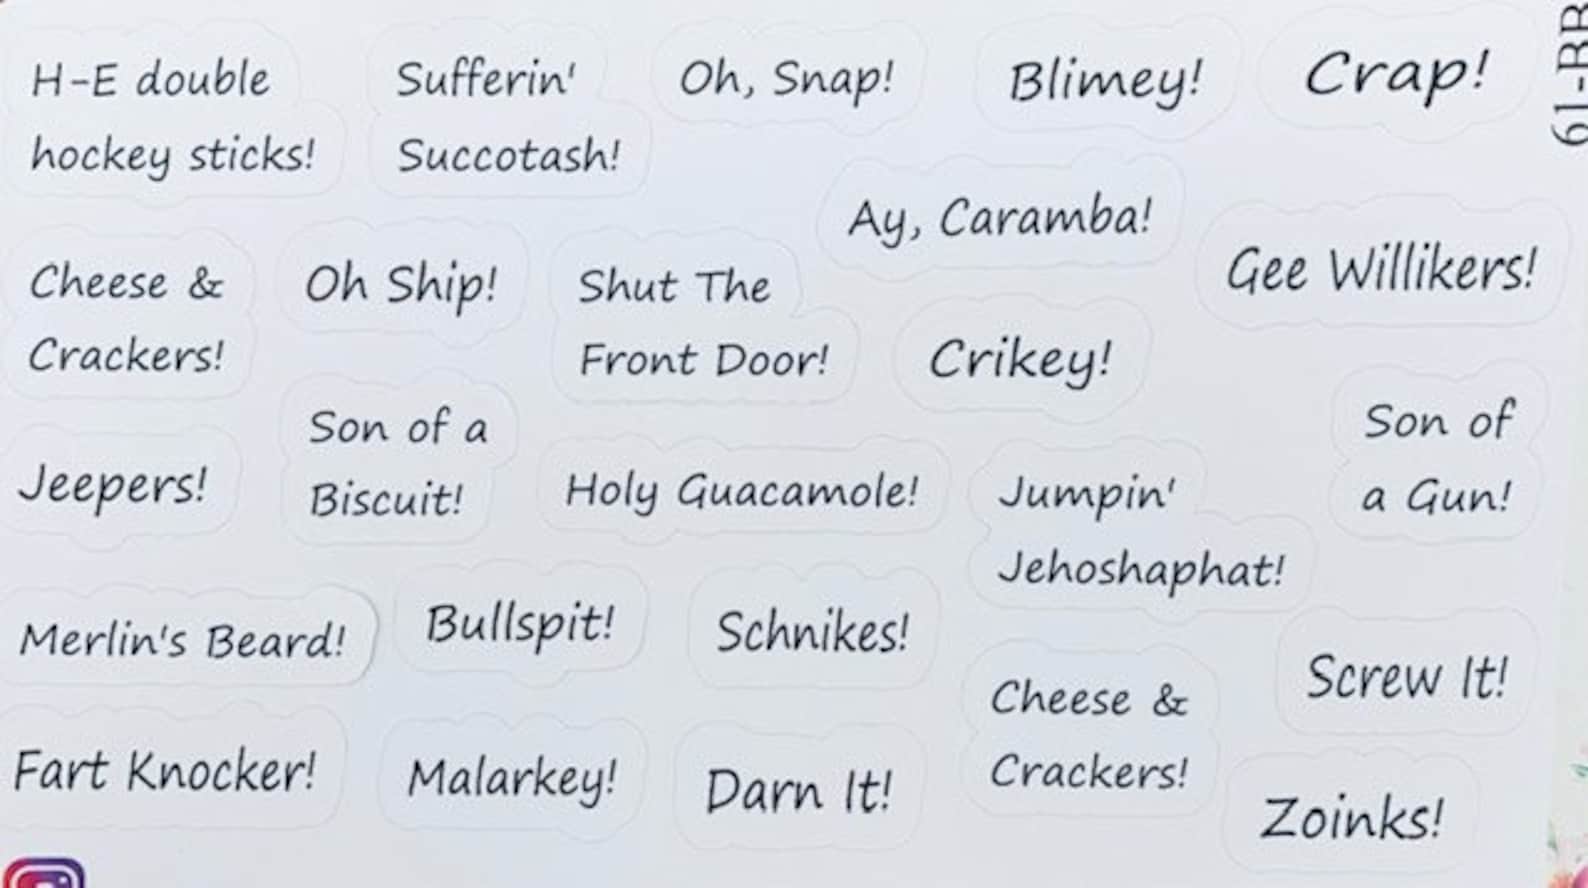 H-E double
hockey sticks!
Sufferin'
Succotash!
Oh, Snap!
Blimey!
Crap!
61-BB
Ay, Caramba!
Gee Willikers!
Cheese &
Crackers!
Oh Ship!
Shut The
Front Door!
Crikey!
Jeepers!
Son of a
Biscuit!
Holy Guacamole!
Jumpin'
Jehoshaphat!
Son of
a Gun!
Merlin's Beard!
Bullspit!
Schnikes!
Cheese &
Crackers!
Screw It!
Fart Knocker!
Malarkey!
Darn It!
Zoinks!